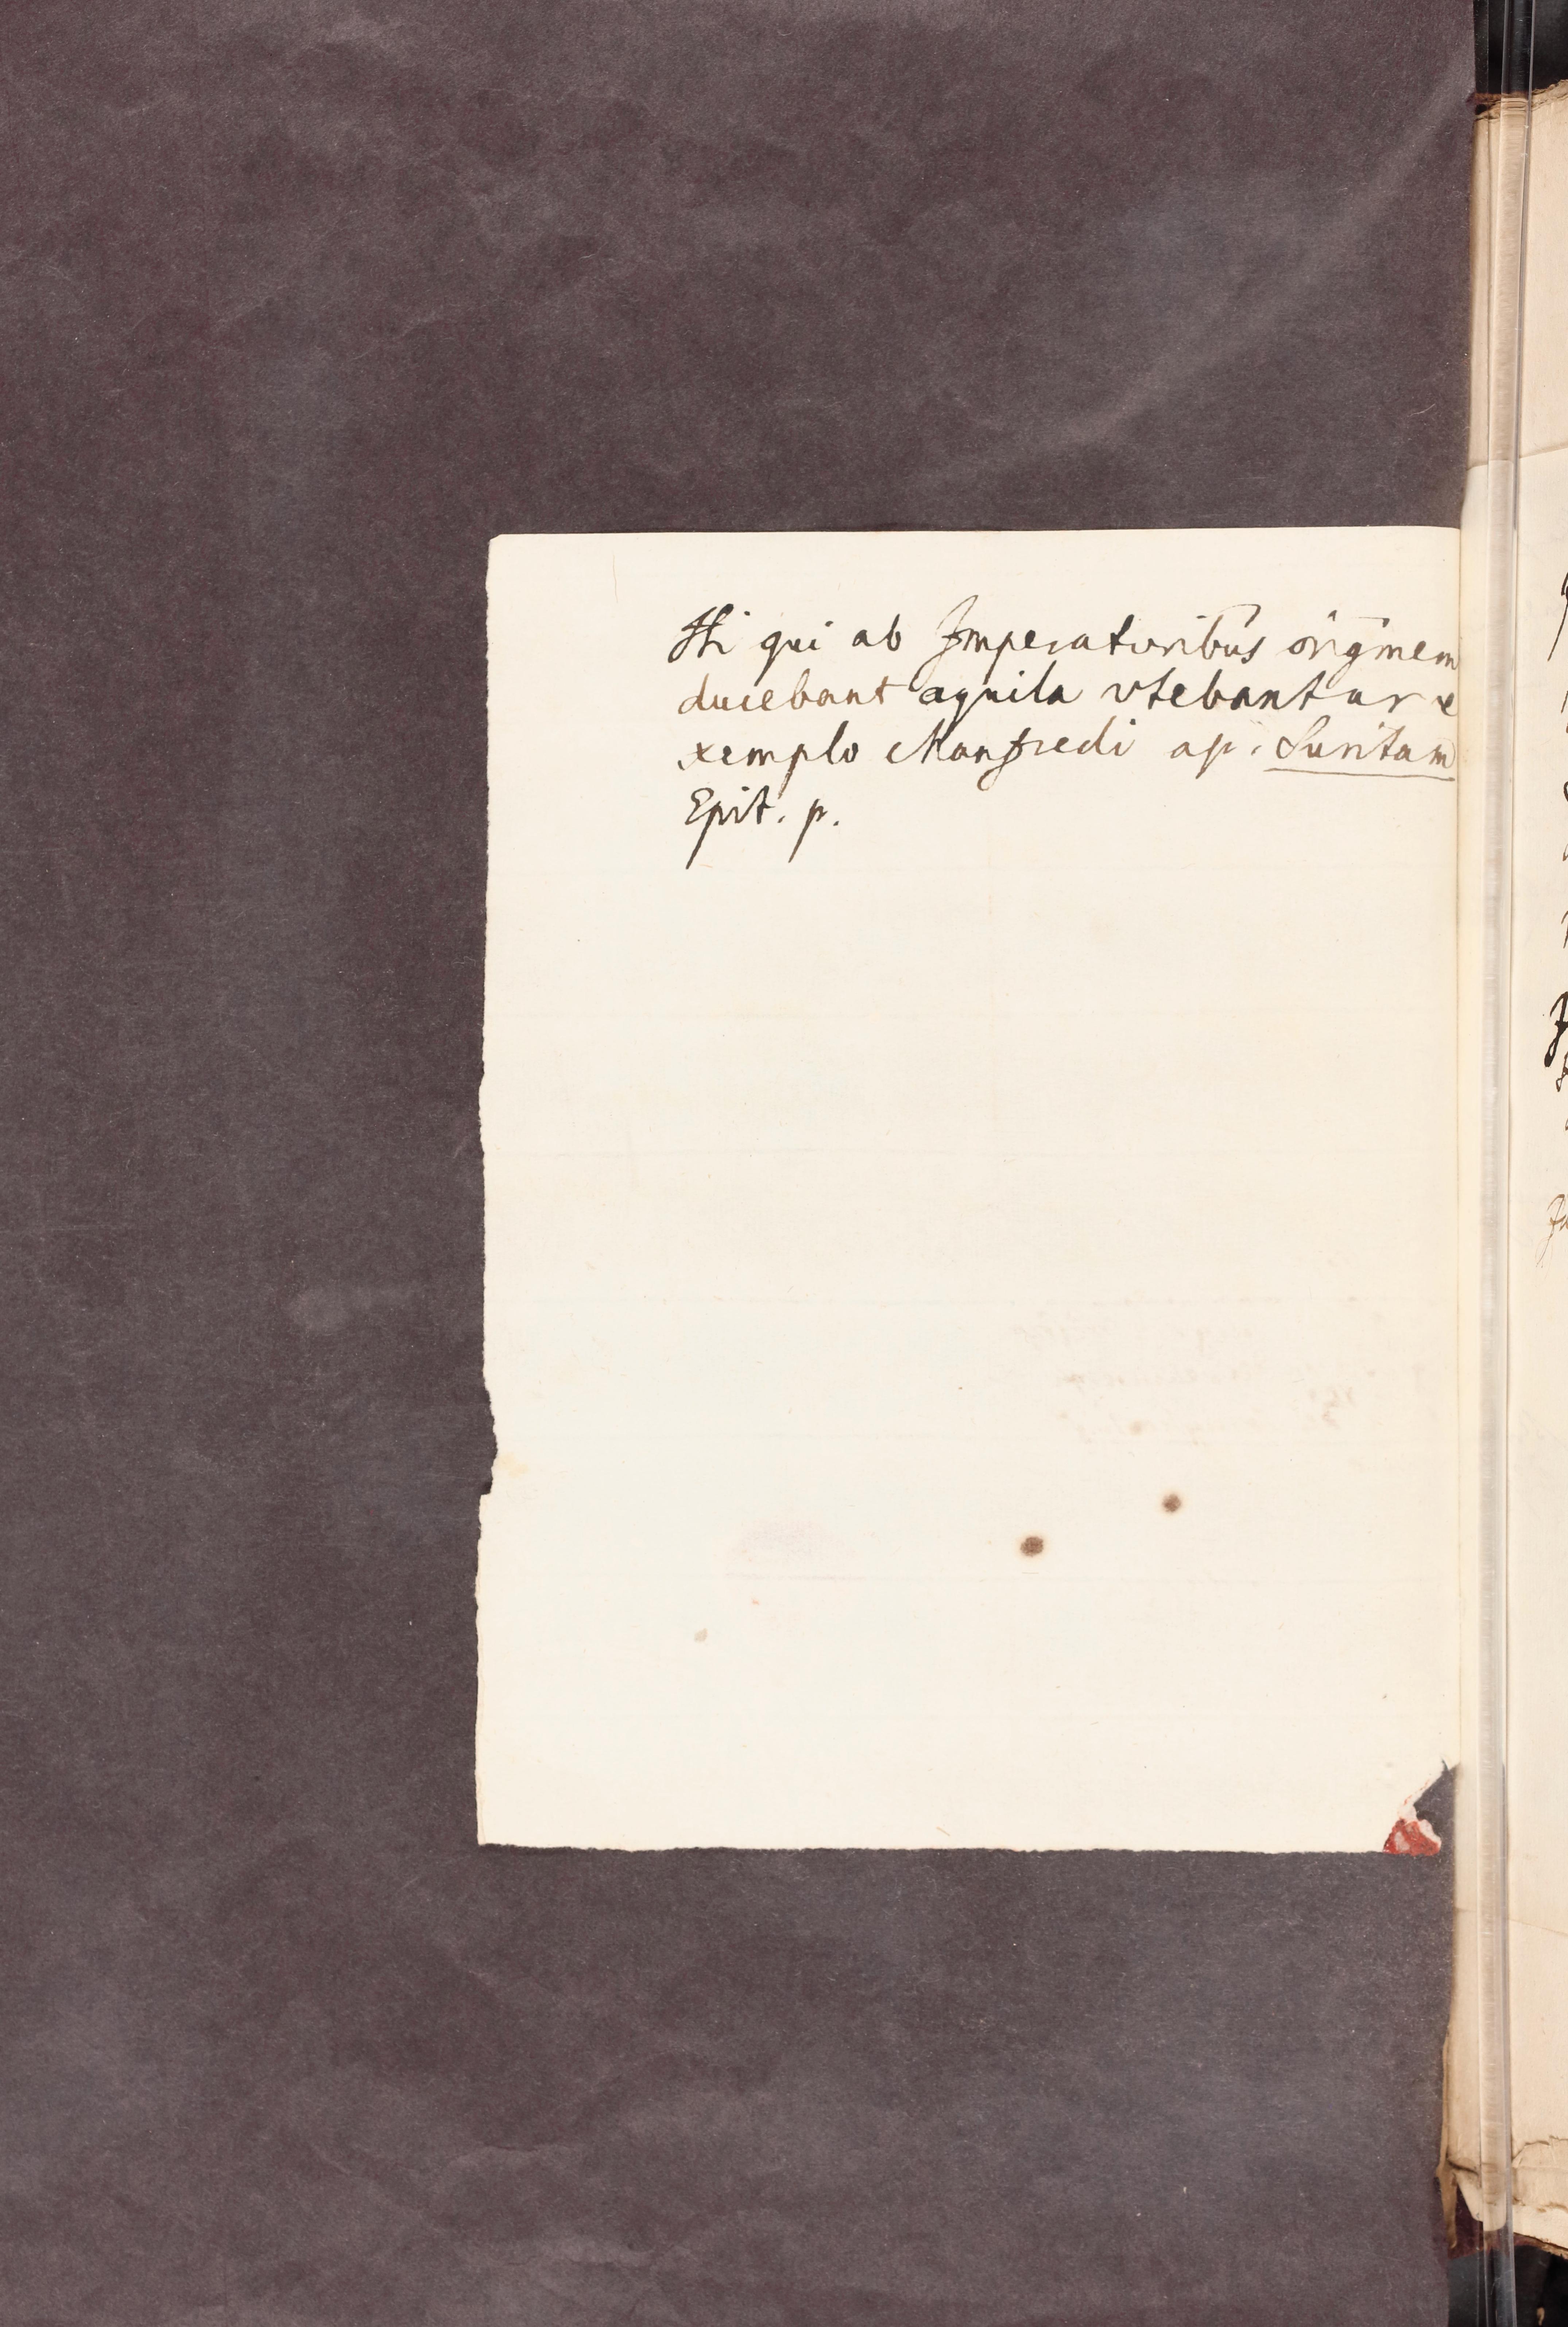 Hi qui ab Imperatoribus originem
ducebant aquila vtebantur e
xemplo Manfredi ap. Suritam
Epit. p.